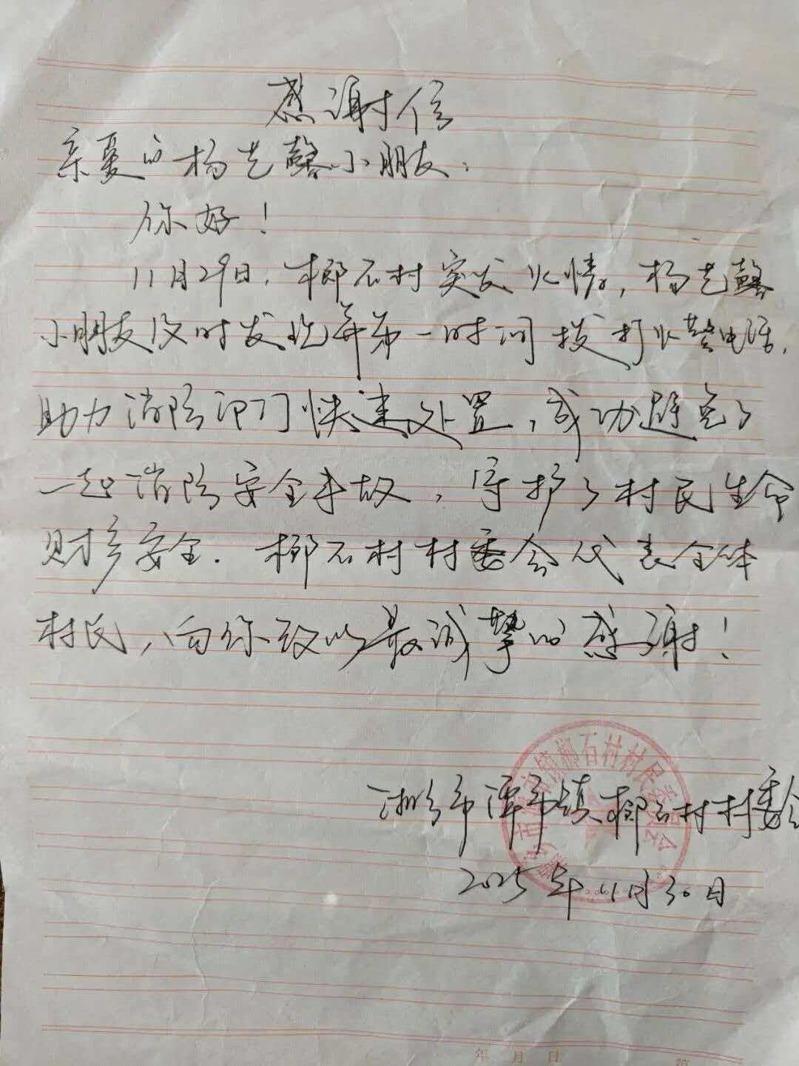 感谢信
亲爱的杨艺馨小朋友：
你好！
11月29日，榔石村突发火情，杨艺馨
小朋友及时发现并第一时间拨打火警电话，
助力消防部门快速处置，成功避免了
一起消防安全事故，守护了村民生命
财产安全．榔石村村委会代表全体
村民，向你致以最诚挚的感谢！
湘乡市潭市镇榔石村村委会
2025年11月30日
湘乡市潭市镇榔石村村民委员会
年 月 日 第